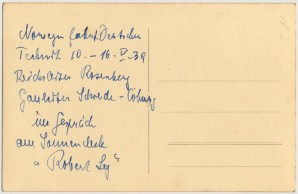 Norwegenfahrt Deutsche
Technik 10. - 16. V. 39
Reichsleiter Rosenberg
Gauleiter Schwede-Coburg
im Gespräch
am Sonnendeck
"Robert Ley"